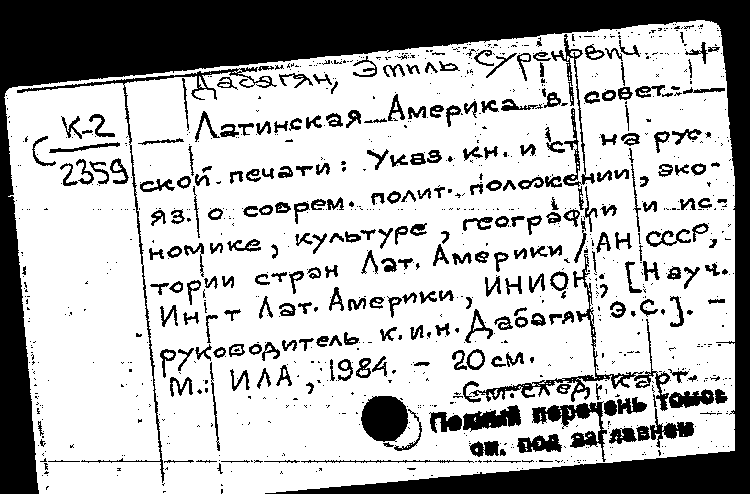 Дабагян, Эмиль Суренович. +
К-2
2359
— Латинская Америка в совет-
ской печати: Указ. кн. и ст. на рус.
яз. о соврем. полит. положении, эко-
номике, культуре, географии и ис-
тории стран Лат. Америки / АН СССР,
Ин-т Лат. Америки, ИНИОН; [Науч.
руководитель к.и.н. Дабагян Э.С.]. –
М.: ИЛА, 1984. – 20 см.
См. след. карт.
Полный перечень томов
см. под заглавием